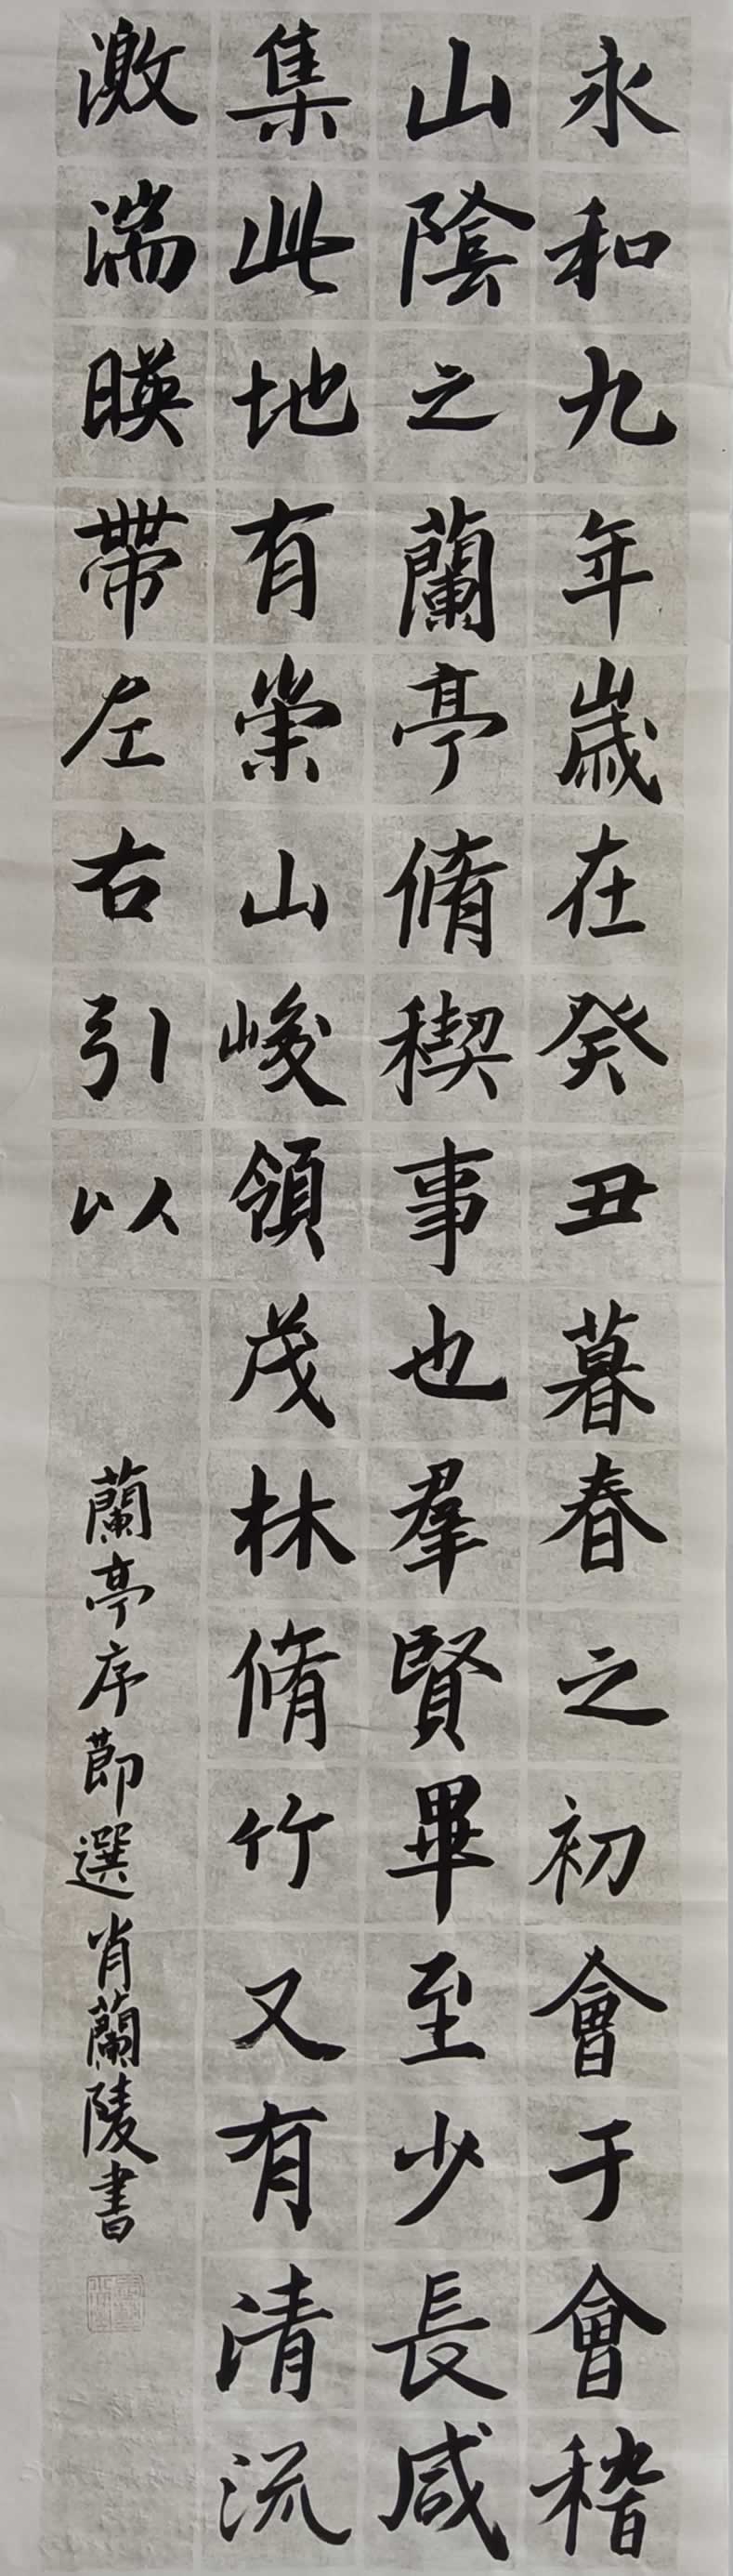 永和九年歲在癸丑暮春之初會于會稽
山陰之蘭亭脩稧事也羣賢畢至少長咸
集此地有崇山峻領茂林脩竹又有清流
激湍暎帶左右引以
蘭亭序節選肖蘭陵書